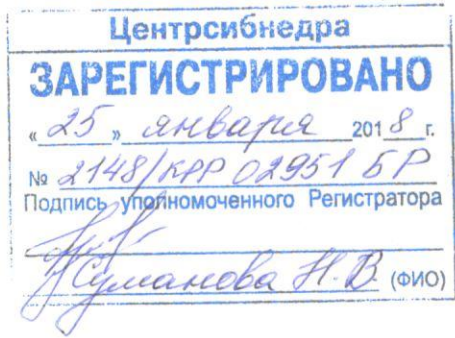 Центрсибнедра
ЗАРЕГИСТРИРОВАНО
«25» января 2018 г.
№ 2148/КРР 02951 БР
Подпись уполномоченного Регистратора
Суманова Н.В. (ФИО)